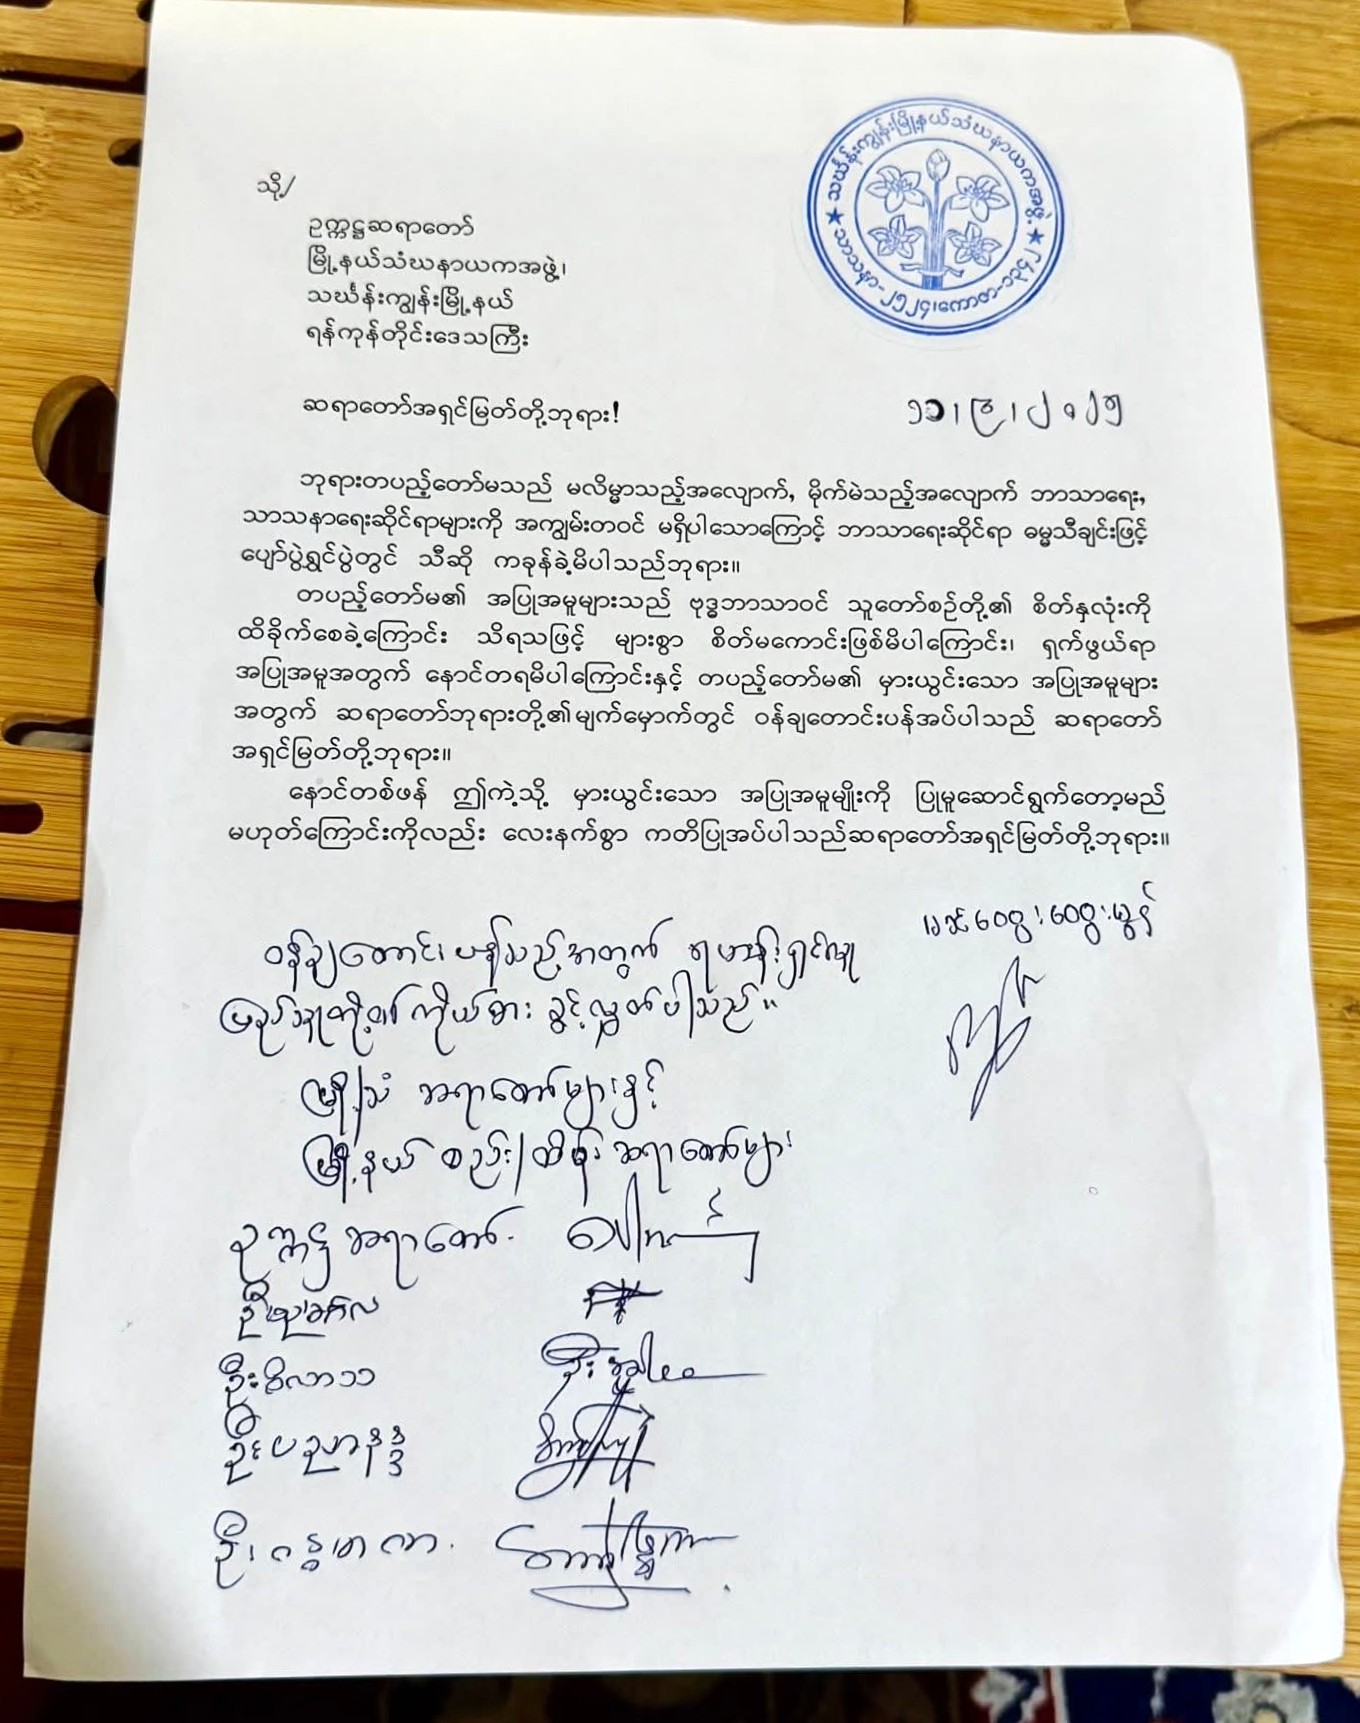 သင်္ဃန်းကျွန်းမြို့နယ်သံဃနာယကအဖွဲ့
သာသနာ-၂၅၂၄၊ကောဇာ-၁၃၄၂
သို့/
ဥက္ကဋ္ဌဆရာတော်
မြို့နယ်သံဃနာယကအဖွဲ့၊
သင်္ဃန်းကျွန်းမြို့နယ်
ရန်ကုန်တိုင်းဒေသကြီး
ဆရာတော်အရှင်မြတ်တို့ဘုရား!
ဘုရားတပည့်တော်မသည် မလိမ္မာသည့်အလျောက်, မိုက်မဲသည့်အလျောက် ဘာသာရေး,
သာသနာရေးဆိုင်ရာများကို အကျွမ်းတဝင် မရှိပါသောကြောင့် ဘာသာရေးဆိုင်ရာ ဓမ္မသီချင်းဖြင့်
ပျော်ပွဲရွှင်ပွဲတွင် သီဆို ကခုန်ခဲ့မိပါသည်ဘုရား။
တပည့်တော်မ၏ အပြုအမူများသည် ဗုဒ္ဓဘာသာဝင် သူတော်စဉ်တို့၏ စိတ်နှလုံးကို
ထိခိုက်စေခဲ့ကြောင်း သိရသဖြင့် များစွာ စိတ်မကောင်းဖြစ်မိပါကြောင်း၊ ရှက်ဖွယ်ရာ
အပြုအမူအတွက် နောင်တရမိပါကြောင်းနှင့် တပည့်တော်မ၏ မှားယွင်းသော အပြုအမူများ
အတွက် ဆရာတော်ဘုရားတို့၏မျက်မှောက်တွင် ဝန်ချတောင်းပန်အပ်ပါသည် ဆရာတော်
အရှင်မြတ်တို့ဘုရား။
နောင်တစ်ဖန် ဤကဲ့သို့ မှားယွင်းသော အပြုအမူမျိုးကို ပြုမူဆောင်ရွက်တော့မည်
မဟုတ်ကြောင်းကိုလည်း လေးနက်စွာ ကတိပြုအပ်ပါသည်ဆရာတော်အရှင်မြတ်တို့ဘုရား။
ဝန်ချတောင်းပန်သည့်အတွက် ရဟန်းရှင်လူ
ပြည်သူတို့၏ကိုယ်စား ခွင့်လွှတ်ပါသည်။
မြို့/သံ ဆရာတော်များနှင့်
မြို့နယ် စည်း/ထိမ်း ဆရာတော်များ
ဥက္ကဋ္ဌ ဆရာတော်
ဦးဝိလာသ
ဦးပညာနန္ဒ